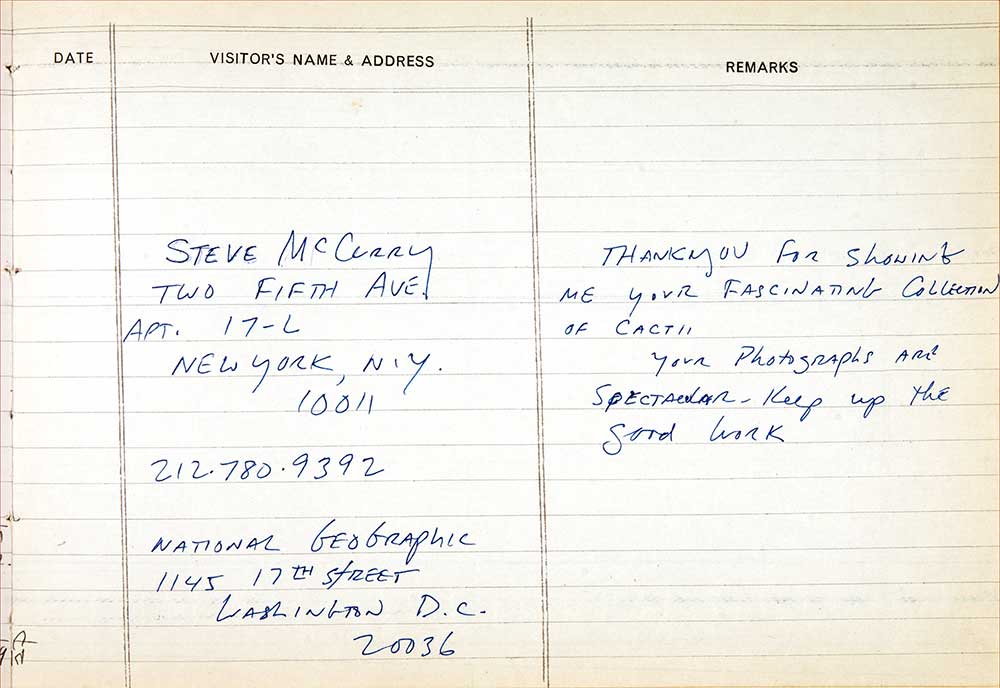 DATE
VISITOR'S NAME & ADDRESS
REMARKS
STEVE McCURRY
TWO FIFTH AVE.
APT. 17-L
NEW YORK, N.Y.
10011
212.780.9392
NATIONAL GEOGRAPHIC
1145 17TH STREET
WASHINGTON D.C.
20036
THANKYOU FOR SHOWING
ME YOUR FASCINATING COLLECTION
OF CACTII
YOUR PHOTOGRAPHS ARE
SPECTACULAR - KEEP UP THE
GOOD WORK